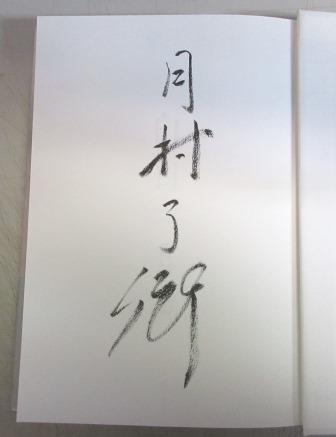 月村了衛